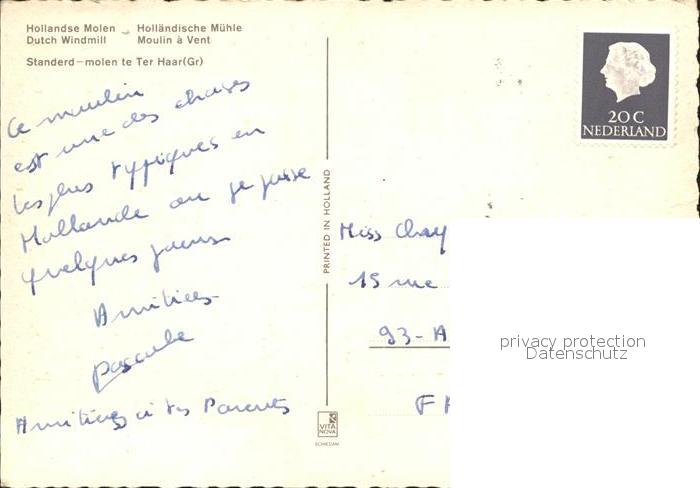 Hollandse Molen - Holländische Mühle
Dutch Windmill Moulin à Vent
Standerd-molen te Ter Haar(Gr)
Ce moulin
est une des choses
les plus typiques en
Hollande ou je passe
quelques jours
Amitiées
Pascale
Amitiés à tes Parents
PRINTED IN HOLLAND
VITA NOVA
SCHIEDAM
20 C
NEDERLAND
Miss Chay
15 rue
93-A
F
privacy protection
Datenschutz